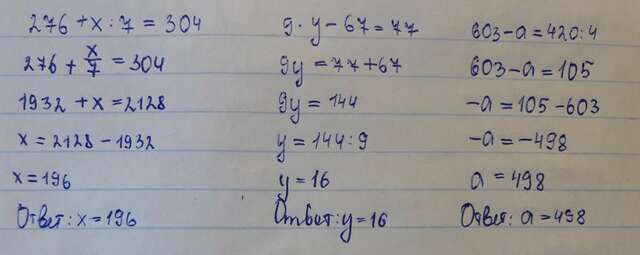 276 + x : 7 = 304
276 + x/7 = 304
1932 + x = 2128
x = 2128 - 1932
x = 196
Ответ: x = 196
9 · y - 67 = 77
9y = 77 + 67
9y = 144
y = 144 : 9
y = 16
Ответ: y = 16
603 - a = 420 : 4
603 - a = 105
-a = 105 - 603
-a = -498
a = 498
Ответ: a = 498